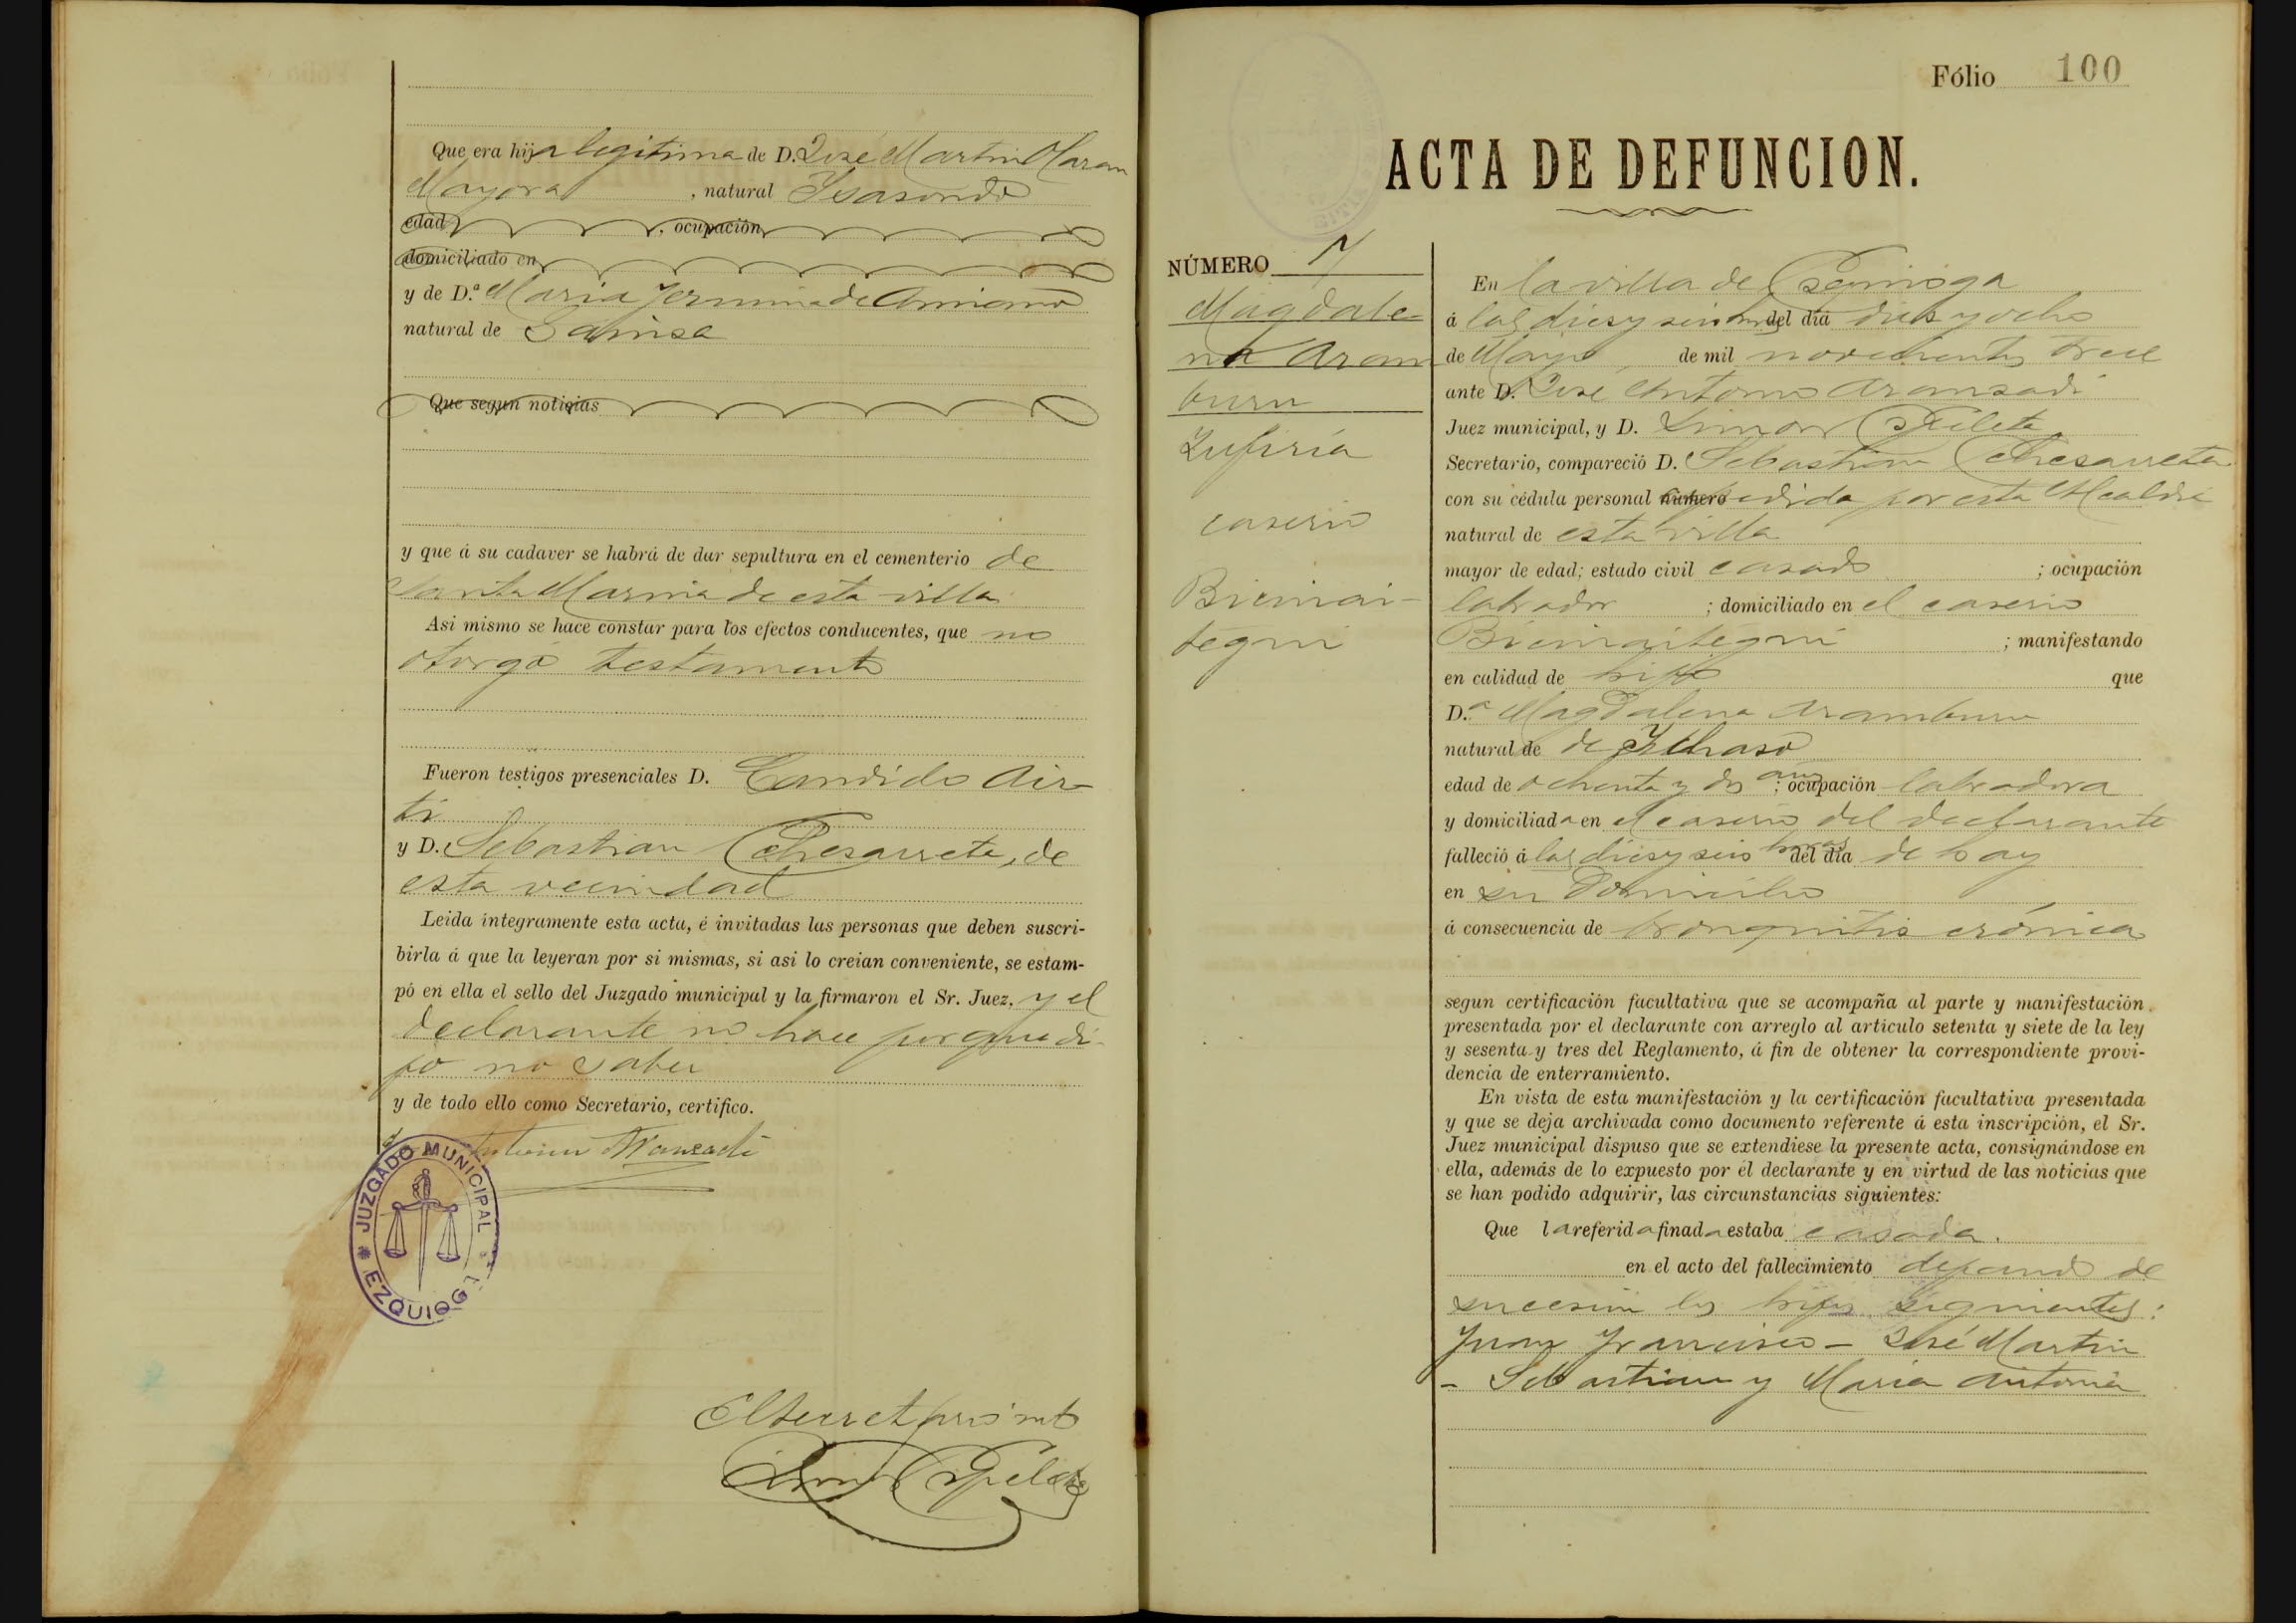 Que era hija legitima de D. José Martin Aram
Mayora, natural Ysasondo
edad, ocupación
domiciliado en
y de D.ª Maria Jermina de Amiano
natural de Gainsa
Que segun noticias
y que á su cadaver se habrá de dar sepultura en el cementerio de
Santa Marina de esta villa
Asi mismo se hace constar para los efectos conducentes, que no
otorgó testamento
Fueron testigos presenciales D. Candido Aira
ti
y D. Sebastian Echesarreta, de
esta vecindad
Leida íntegramente esta acta, é invitadas las personas que deben suscri-
birla á que la leyeran por si mismas, si asi lo creian conveniente, se estam-
pó en ella el sello del Juzgado municipal y la firmaron el Sr. Juez, y el
declarante no hace porque di-
jo no saber
y de todo ello como Secretario, certifico.
Antonio Aranzadi
JUZGADO MUNICIPAL
EZQUIOGA
El Secretario
Fólio 100
ACTA DE DEFUNCION.
NÚMERO 7
Magdale-
na Aram
buru
Zufiria
caserio
Bicinai-
tegui
En la villa de Ezquioga
á las dies y seis horas del dia dies y ocho
de Mayo de mil novecientos trece
ante D. José Antonio Aranzadi
Juez municipal, y D. Simon
Secretario, compareció D. Sebastian Echesarreta
con su cédula personal número expedida por esta Alcaldia
natural de esta villa
mayor de edad; estado civil casado ; ocupación
labrador ; domiciliado en el caserio
Bicinaitegui ; manifestando
en calidad de hijo que
D.ª Magdalena Aramburu
natural de de Ychaso
edad de ochenta y dos años ; ocupación labradora
y domiciliada en el caserio del declarante
falleció á las dies y seis horas del dia de hoy
en su domicilio
á consecuencia de bronquitis crónica
segun certificación facultativa que se acompaña al parte y manifestación
presentada por el declarante con arreglo al articulo setenta y siete de la ley
y sesenta y tres del Reglamento, á fin de obtener la correspondiente provi-
dencia de enterramiento.
En vista de esta manifestación y la certificación facultativa presentada
y que se deja archivada como documento referente á esta inscripción, el Sr.
Juez municipal dispuso que se extendiese la presente acta, consignándose en
ella, además de lo expuesto por el declarante y en virtud de las noticias que
se han podido adquirir, las circunstancias siguientes:
Que la referida finada estaba casada.
en el acto del fallecimiento dejando de
sucesion los hijos siguientes:
Juan Francisco - José Martin
- Sebastian y Maria Antonia